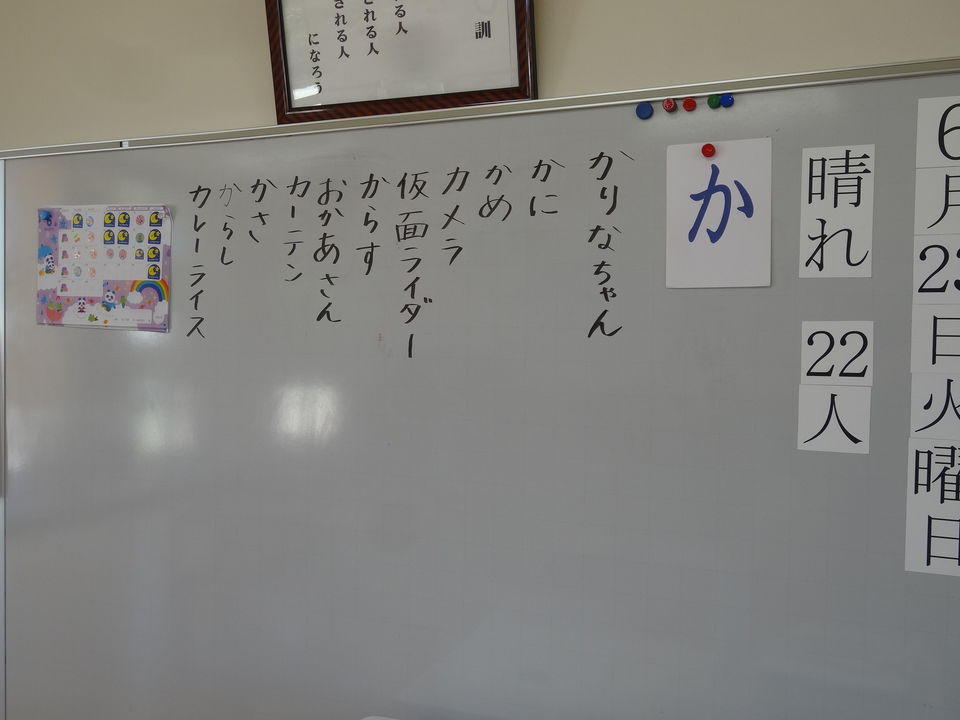 訓
れる人
される人
になろう
6月23日火曜日
晴れ
22人
か
かりなちゃん
かに
かめ
カメラ
仮面ライダー
からす
おかあさん
カーテン
かさ
からし
カレーライス